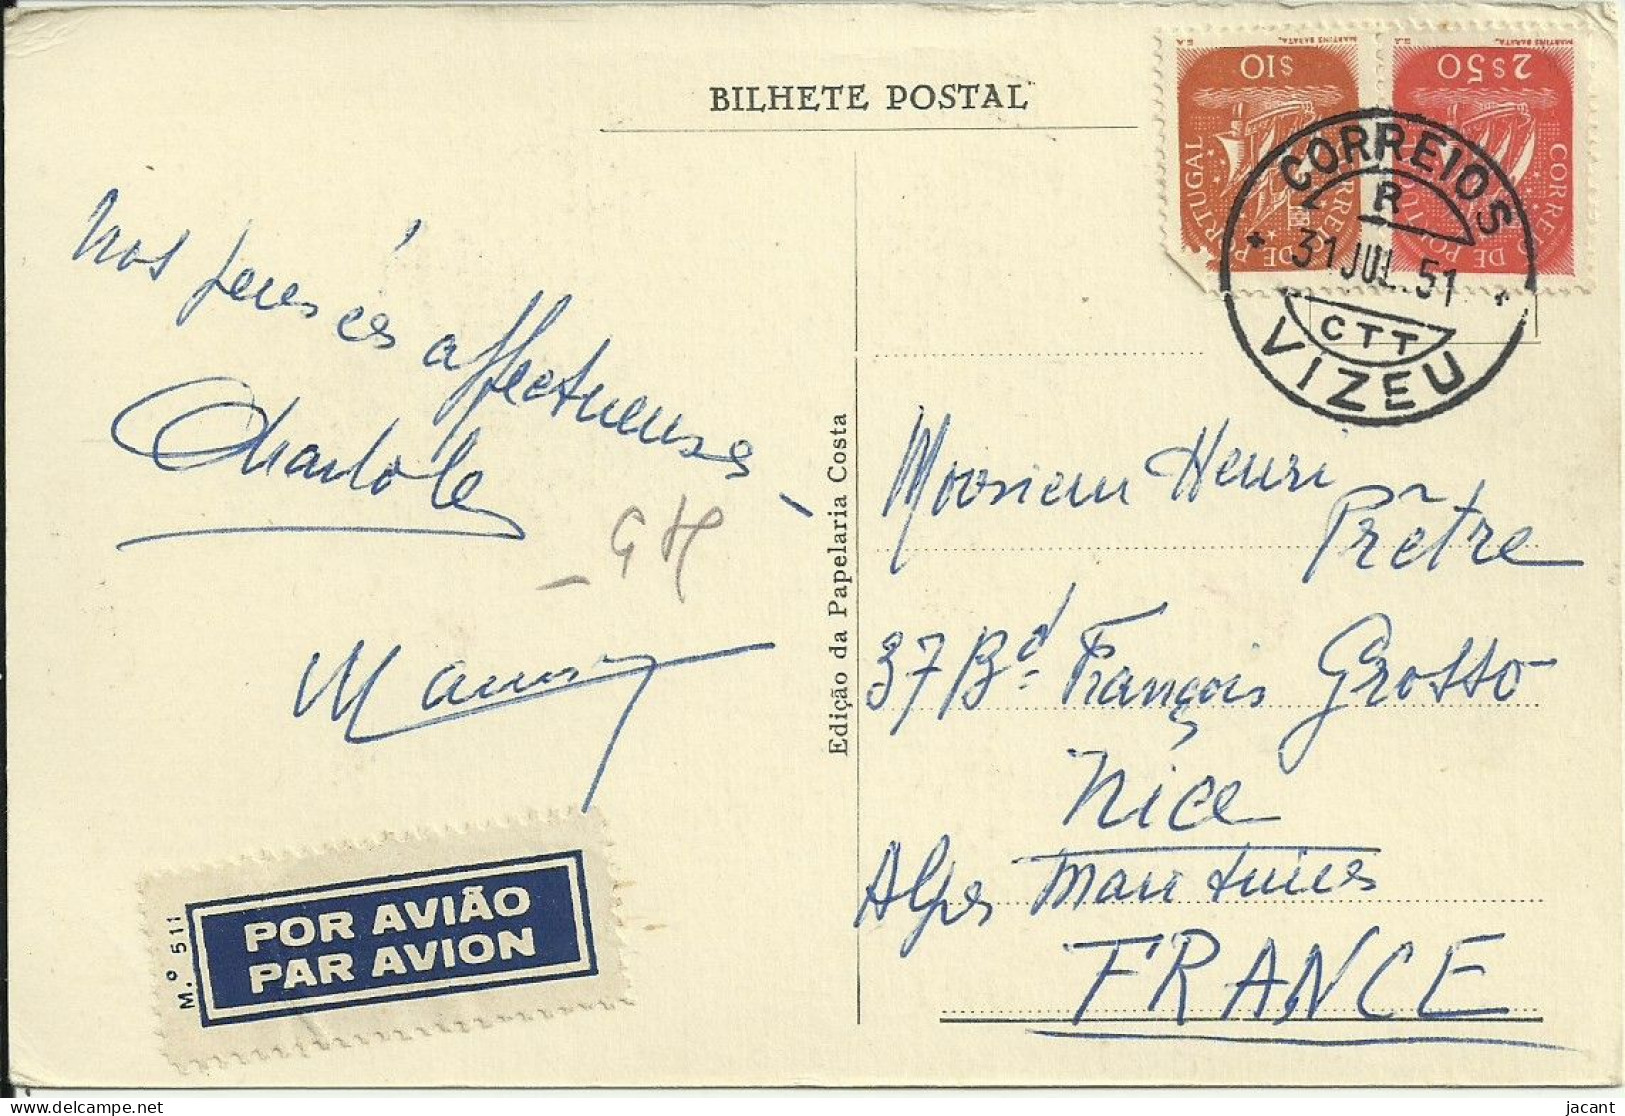 BILHETE POSTAL
MARTINS BARATA
$10
PORTUGAL
CORREIO DE PORTUGAL
MARTINS BARATA
2$50
CORREIO DE PORTUGAL
CORREIOS
R
31 JUL. 51
CTT
VIZEU
Nos pensées affectueuses
GH
Edição da Papelaria Costa
Monsieur Henri
Prêtre
37 Bd François Grosso
Nice
Alpes Maritimes
FRANCE
M.º 511
POR AVIÃO
PAR AVION
jacant